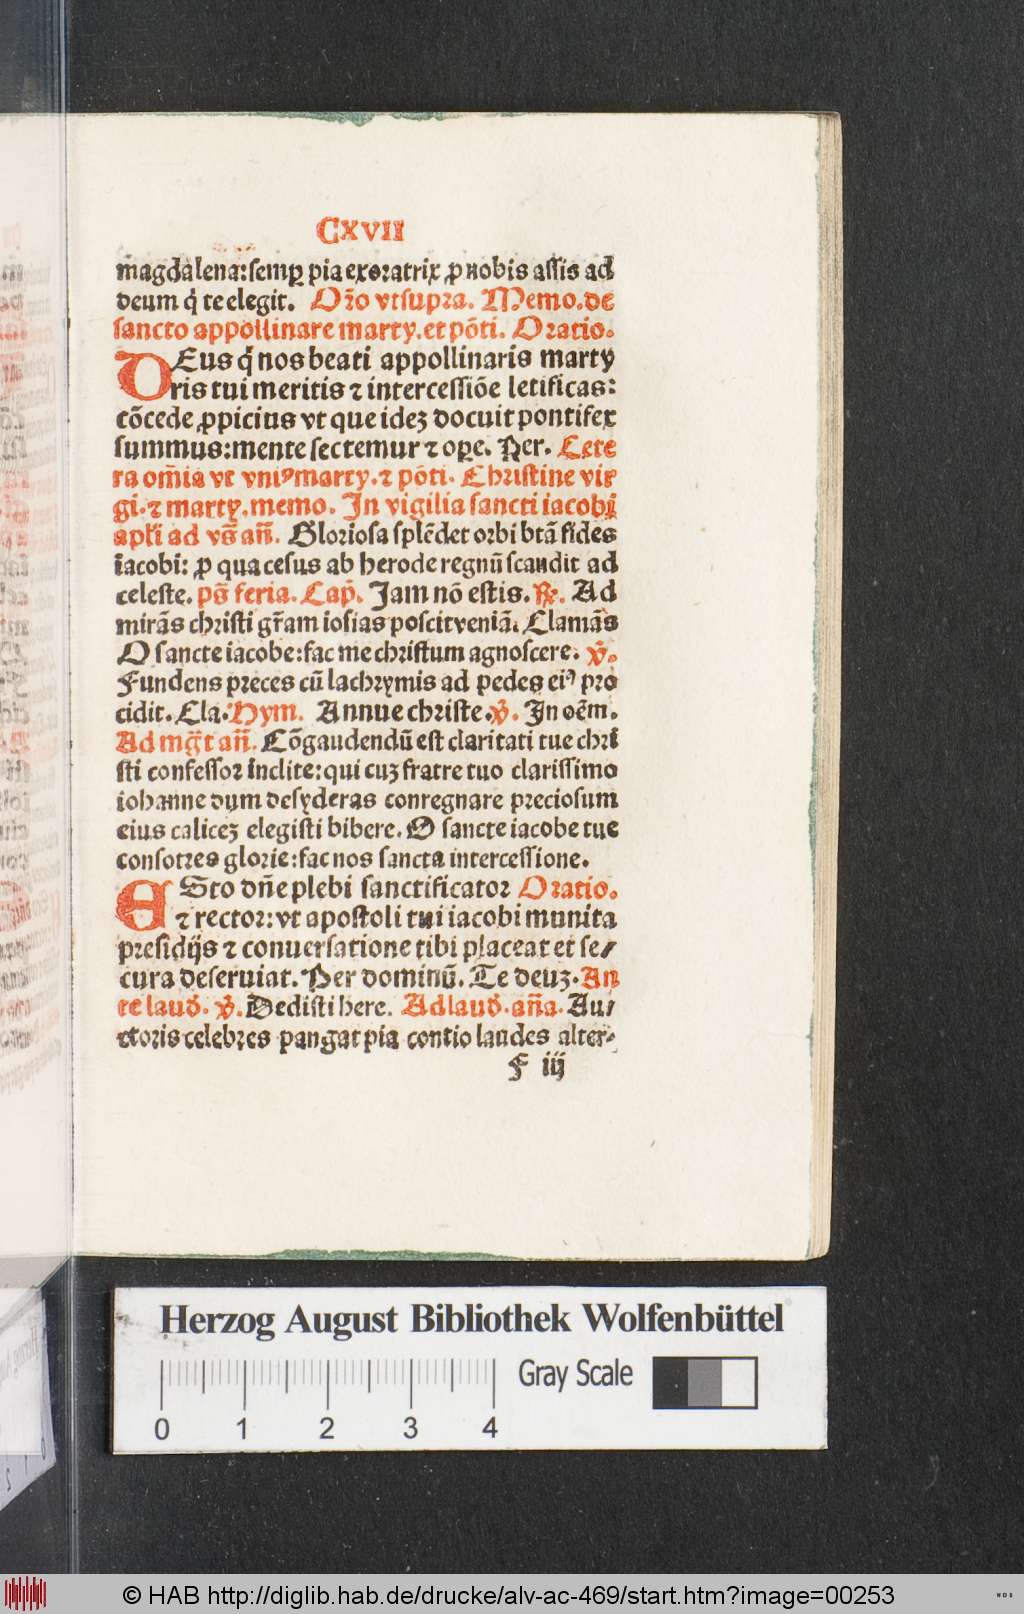 CXVII
magdalena:semꝑ pia exoratrix ꝓ nobis assis ad
deum q̇ te elegit. Or̃o vtsupra. Memo.de
sancto appollinare marty.et põti. Oratio.
DEus q̇ nos beati appollinaris marty
ris tui meritis ⁊ intercessiõe letificas:
cõcede ꝓpicius vt que ideȝ docuit pontifex
summus:mente sectemur ⁊ oꝑe. Per. Cete
ra om̃ia vt vniꝰ marty.⁊ põti. Christine vir
gi.⁊ marty.memo. In vigilia sancti iacobi
apl'i ad vs̃ añ. Gloriosa splẽdet orbi btã fides
iacobi: ꝓ qua cesus ab herode regnũ scandit ad
celeste. ps̃ feria. Cap̃. Jam nõ estis. ℟. Ad
mirãs christi gr̃am iosias poscit veniã. Clamãs
O sancte iacobe:fac me christum agnoscere. ℣.
Fundens preces cũ lachrymis ad pedes eiꝰ pro
cidit. Cla. Hym. Annue christe. ℣. In oẽm.
Ad mg̃t añ. Cõgaudendũ est claritati tue chri
sti confessor inclite:qui cuȝ fratre tuo clarissimo
iohanne dum desyderas conregnare preciosum
eius caliceȝ elegisti bibere. O sancte iacobe tue
consortes glorie:fac nos sancta intercessione.
ESto dñe plebi sanctificator Oratio.
⁊ rector:vt apostoli tui iacobi munita
presidijs ⁊ conuersatione tibi placeat et se/
cura deseruiat. Per dominũ. Te deuȝ. An
te laud̾. ℣. Dedisti here. Ad laud̾. aña. Au/
ctoris celebres pangat pia contio laudes alter-
F iij
Herzog August Bibliothek Wolfenbüttel
Gray Scale
0 1 2 3 4
© HAB http://diglib.hab.de/drucke/alv-ac-469/start.htm?image=00253